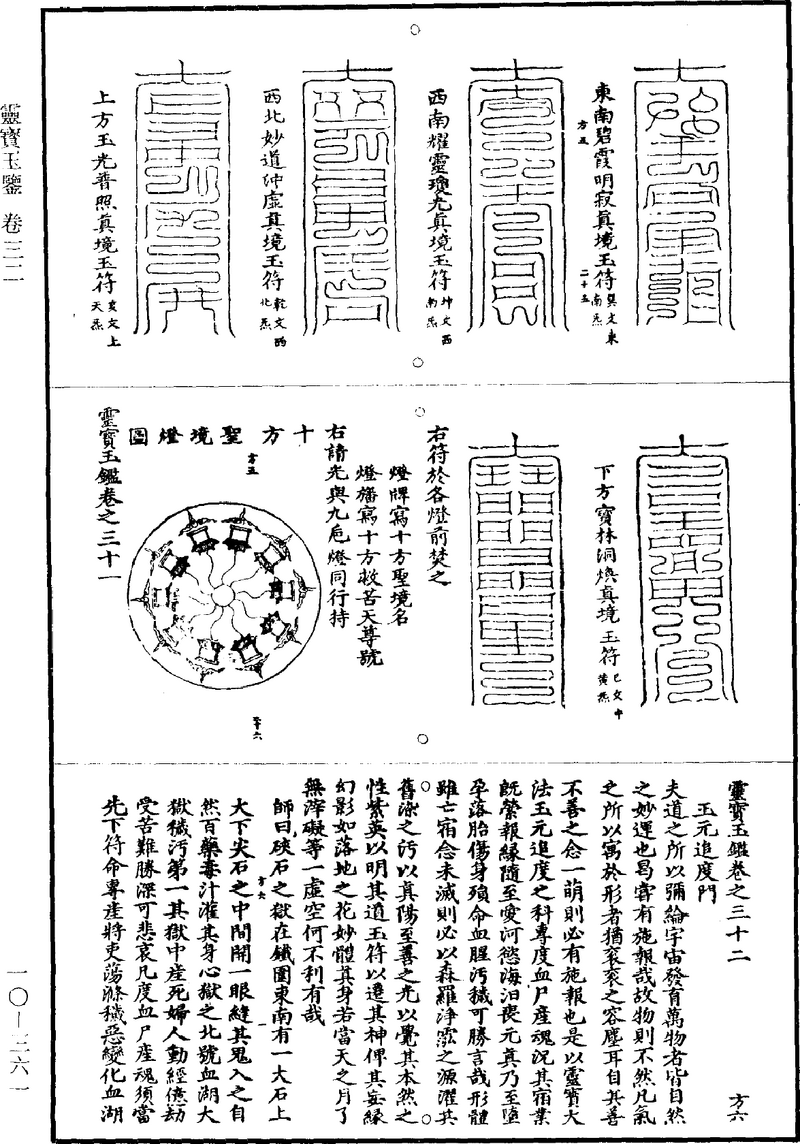 靈寶玉鑒 卷三二
一〇—三六一
東南碧霞明寂真境玉符巽文東南炁
方五
二十五
西南耀靈瓊光真境玉符坤文西南炁
西北妙道沖虛真境玉符乾文西北炁
上方玉光普照真境玉符亥文上天炁
下方寶林洞煥真境玉符巳文中黃炁
右符於各燈前焚之
燈牌寫十方聖境名
燈旛寫十方救苦天尊號
右請光與九巵燈同行持
十方聖境燈圖
方五
靈寶玉鑑卷之三十一
靈寶玉鑑卷之三十二
方六
玉元追度門
夫道之所以彌綸宇宙發育萬物者皆自然
之妙運也曷嘗有施報哉故物則不然凡氣
之所以寓於形者猶衮衮之容塵耳自其善
不善之念一萌則必有施報也是以靈寶大
法玉元追度之科專度血尸產魂況其宿業
既縈報緣隨至愛河慾海汩喪元真乃至墮
孕落胎傷身殞命血腥污穢可勝言哉形體
雖亡宿念未滅則必以森羅淨泓之源濯其
舊染之污以真陽至善之光以覺其本然之
性紫英以明其道玉符以遷其神俾其妄緣
幻影如落地之花妙體真身若當天之月了
無滓礙等一虛空何不利有哉
師曰硤石之獄在鐵圍東南有一大石上
方六
大下尖石之中間開一眼縫其鬼入之自
然百藥毒汁灌其身心獄之北號血湖大
獄穢污第一其獄中產死婦人動經億劫
受苦難勝深可悲哀凡度血尸產魂須當
先下符命專產將吏蕩滌穢惡變化血湖